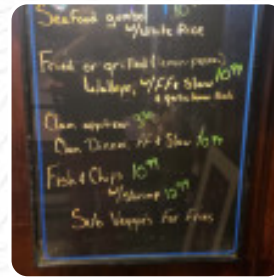 Seafood gumbo 10
w/ white Rice
Fried or grilled (lemon pepper)
w/ FF + Slaw 10.99
Clam appetizer 3.99
Clam Dinner, FF + Slaw 10.99
Fish & Chips 10.99
w/ Shrimp 12.99
Sub Veggies For Fries